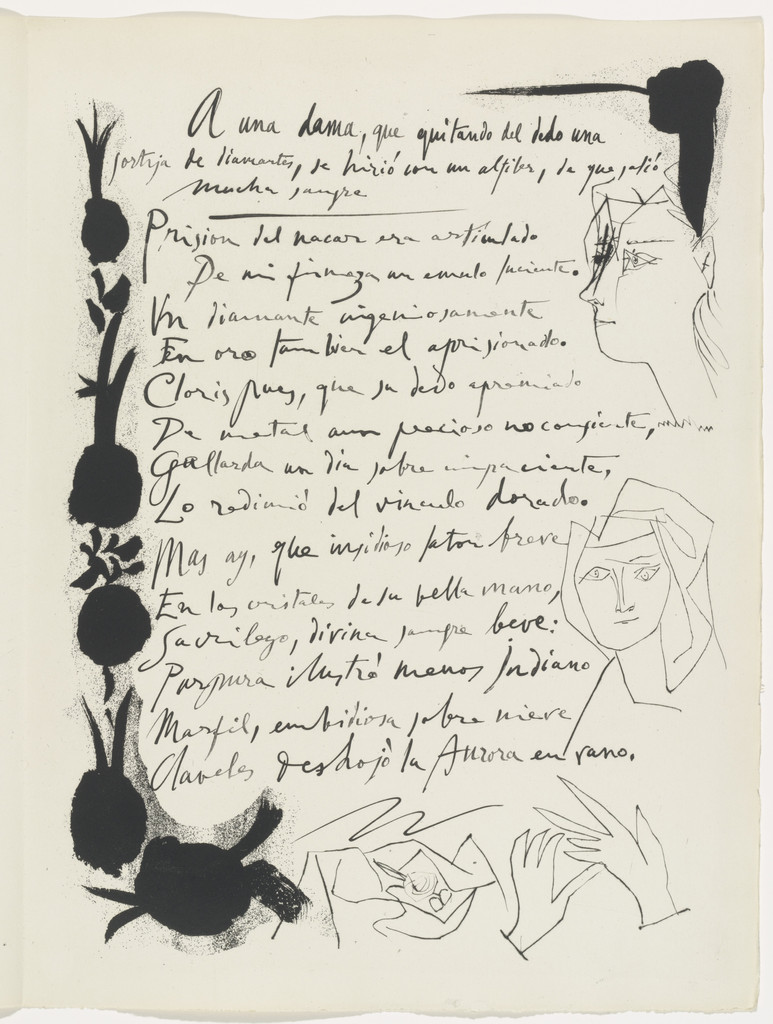 A una dama, que quitando del dedo una
sortija de diamantes, se hirió con un alfiler, de que salió
mucha sangre
Prision del nacar era articulado
De mi firmeza un emulo luciente.
Un diamante ingeniosamente
En oro tambien el aprisionado.
Cloris pues, que su dedo apremiado
De metal aun precioso no consiente,
Gallarda un dia sobre impaciente,
Lo redimió del vinculo dorado.
Mas ay, que insidioso laton breve
En los cristales de su bella mano,
Sacrilego, divina sangre beve:
Purpura ilustró menos Indiano
Marfil, embidiosa sobre nieve
Claveles deshojó la Aurora en vano.